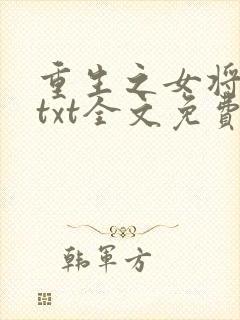 重生之女将
txt全文免費
韩軍方